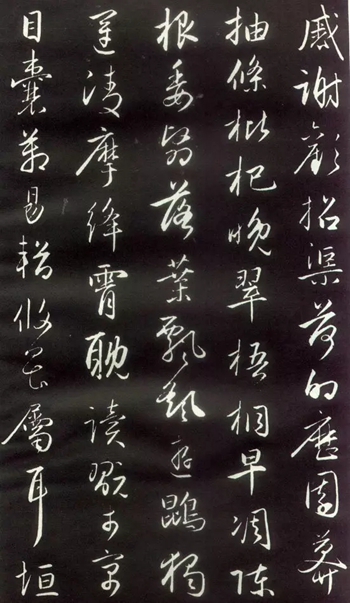 慼謝歡招渠荷的歷園莽
抽條枇杷晚翠梧桐早凋陳
根委翳落葉飄颻遊鵾獨
運凌摩絳霄耽讀翫市寓
目囊箱易輶攸畏屬耳垣